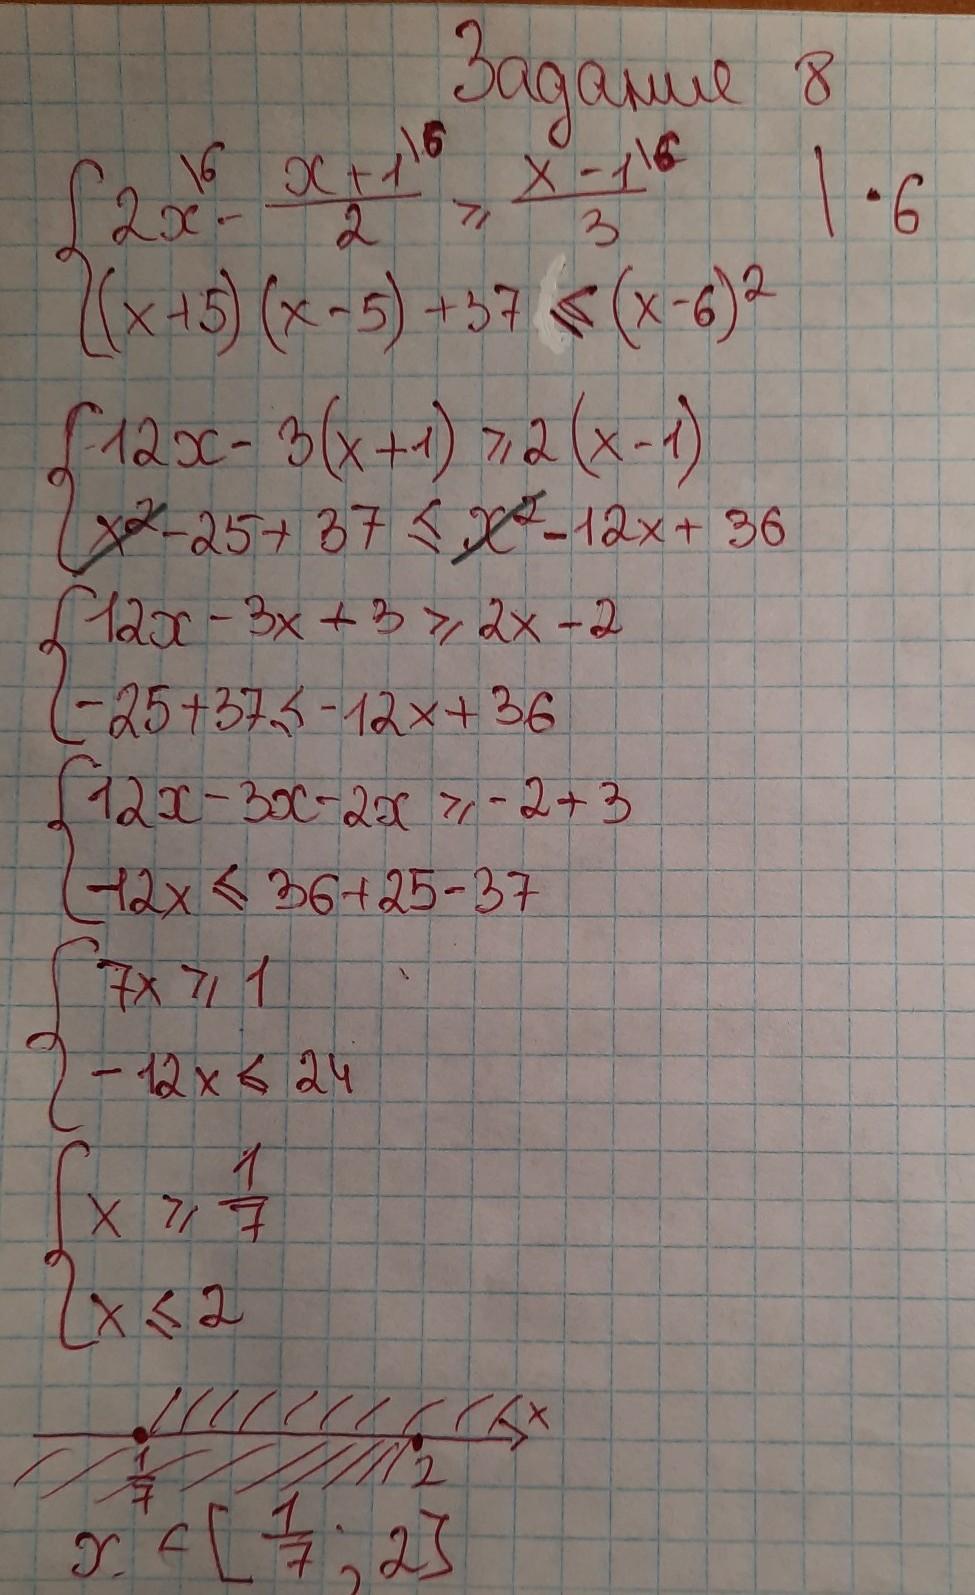 Задание 8
{ 2x\6 - (x+1)/2 \6 ⩾ (x-1)/3 \6 | · 6
(x+5)(x-5)+37 ⩽ (x-6)²
{ 12x - 3(x+1) ⩾ 2(x-1)
x² - 25 + 37 ⩽ x² - 12x + 36
{ 12x - 3x + 3 ⩾ 2x - 2
-25+37 ⩽ -12x + 36
{ 12x - 3x - 2x ⩾ -2 + 3
-12x ⩽ 36+25-37
{ 7x ⩾ 1
-12x ⩽ 24
{ x ⩾ 1/7
x ⩽ 2
x
1/7 2
x ∈ [1/7; 2]